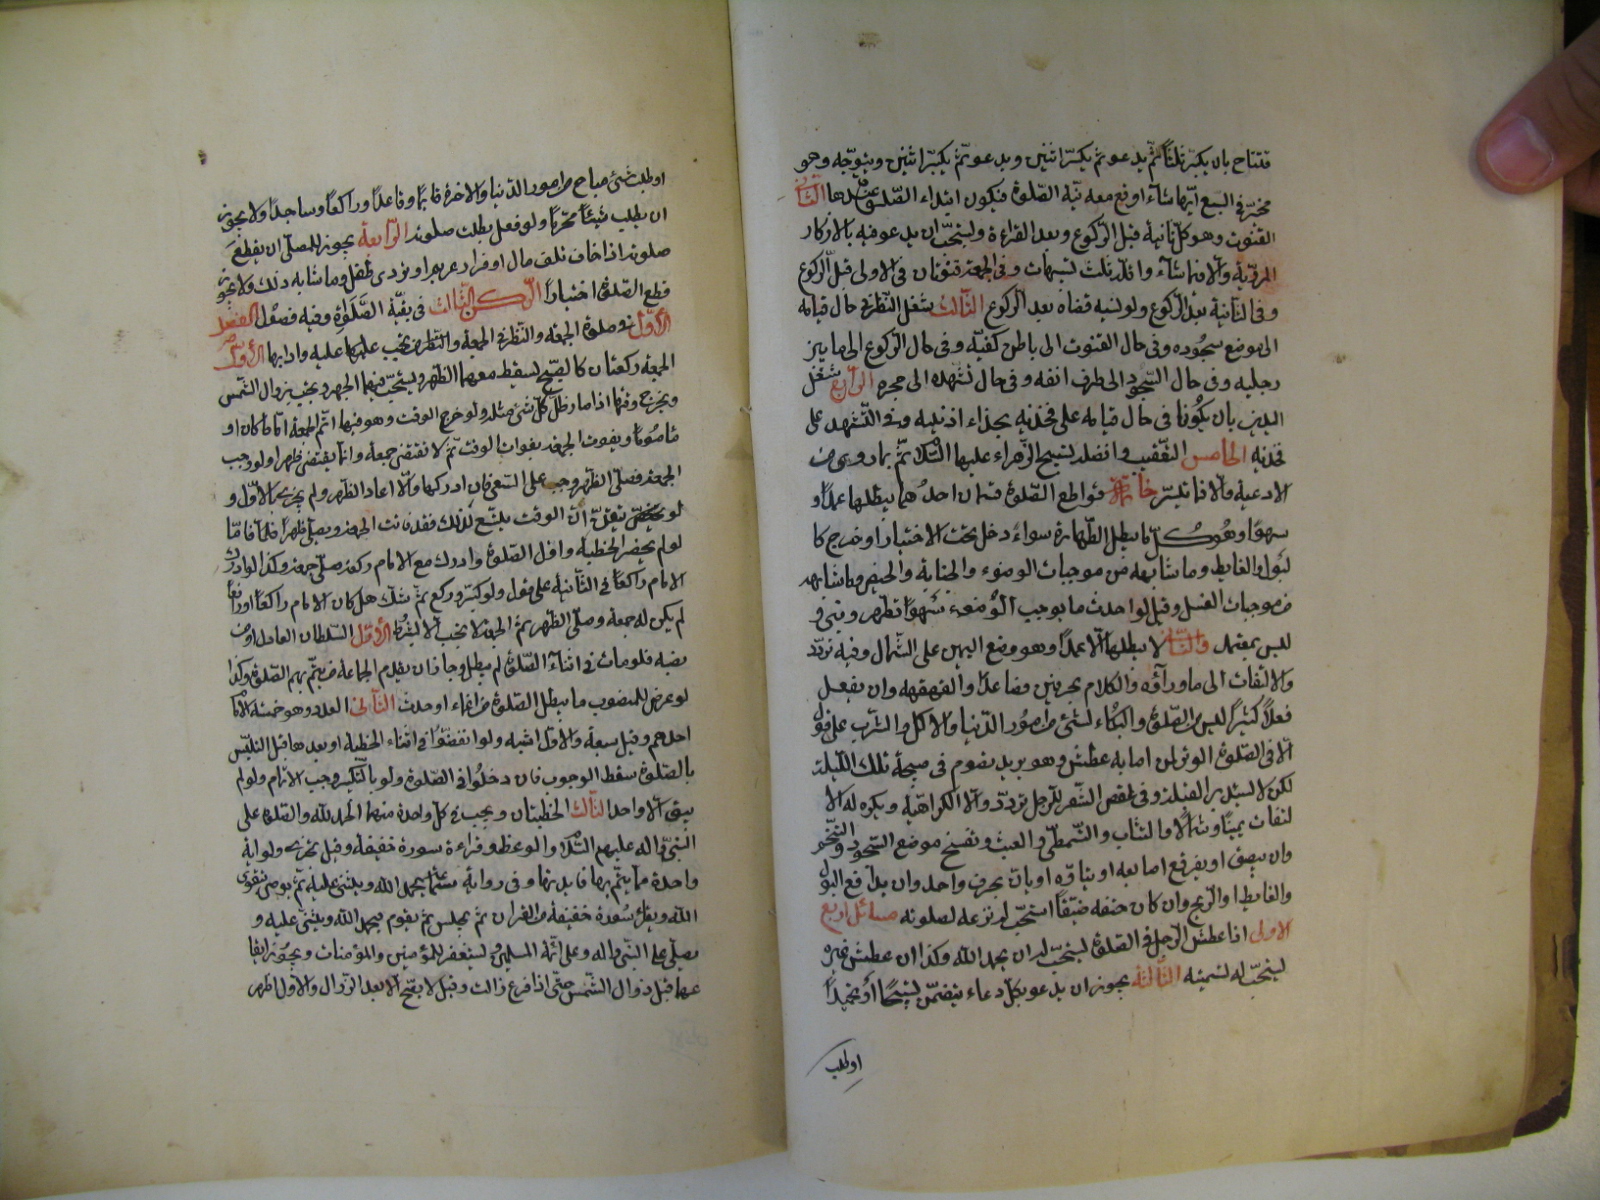 فتتاح بان يكبر ثلثاً ثم يدعو ثم يكبر اثنتين ويدعو ثم يكبر اثنتين ويتوجه وهو
مخير في السبع ايتها شاء اوقع معه نية الصلوة فيكون ابتداء الصلوة عندها الثانى
القنوت وهو كل ثانية قبل الركوع وبعد القراءة ويستحب ان يدعو فيه بالاذكار
المروية والا فما شاء واقله ثلث تسبيحات وفى الجمعة قنوتان فى الاولى قبل الركوع
وفى الثانية بعد الركوع ولو نسيه قضاه بعد الركوع الثالث شغل النظر فى حال قيامه
الى موضع سجوده وفى حال القنوت الى باطن كفيه وفى حال الركوع الى ما بين
رجليه وفى حال السجود الى طرف انفه وفى حال تشهده الى حجره الرابع شغل
اليدين بان يكونا فى حال قيامه على فخذيه بحذاء اذنيه وفى التشهد على
فخذيه الخامس التعقيب وافضله تسبيح الزهراء عليها السلام ثم بما روى من
الادعية والا فما تيسر خاتمة قواطع الصلوة قسمان احدهما يبطلها عمداً و
سهوًا وهو كل ما يبطل الطهارة سواء دخل تحت الاختيار او خرج كا
لبول والغايط وما شابهه من موجبات الوضوء والجنابة والحيض وما شابهه
من موجبات الغسل وقيل لو احدث ما يوجب الوضوء سهوًا تطهر وبنى و
ليس بمعتمد والثانى لا يبطلها الا عمداً وهو وضع اليمين على الشمال وفيه تردد
والالتفات الى ما وراؤه والكلام بحرفين فصاعداً والقهقهه وان يفعل
فعلاً كثيرًا ليس من الصلوة والبكاء لشئ من امور الدنيا والاكل والشرب على قول
الا فى الصلوة الوتر لمن اصابه عطش وهو يريد يصوم فى صبيحة تلك الليلة
لكن لا يستدبر القبلة وفى عقص الشعر للرجل تردد والا الكراهية ويكره له الا
لتفات يمينًا وشمالًا والتثاب والتمطى والعبث ونفخ موضع السجود والتنخم
وان يبصق او يفرقع اصابعه او يتاوه او يان بحرف واحد وان يدافع البول
والغايط او الريح وان كان خفه ضيقًا استحب له نزعه لصلوته مسائل اربع
الاولى اذا عطش الرجل فى الصلوة يستحب له ان يحمد الله وكذا ان عطش غيره
يستحب له تسميته الثالثة يجوز ان يدعو بكل دعاء يتضمن تسبيحًا او تحميداً
او طلب
او طلب شئ مباح من امور الدنيا والاخرة قايمًا وقاعداً وراكعًا وساجداً ولا يجوز
ان يطلب شيئًا محرمًا ولو فعل بطلت صلوته الرابعة يجوز للمصلى ان يقطع
صلوته اذا خاف تلف مال او فرار غريم او تردى طفل وما شابه ذلك ولا يجوز
قطع الصلوة اختياراً الركن الثالث فى بقية الصلوة وفيه فصول الفصل
الاول فى صلوة الجمعة والنظر فى الجمعة والنظر من يجب عليهما عليه وادابها الاول
الجمعة ركعتان كالصبح لسقط معهما الظهر ويستحب فيهما الجهر ويجب بزوال الشمس
ويخرج وقتها اذا صار ظل كل شئ مثله ولو خرج الوقت وهو فيها اتم الجمعة اماما كان او
مامومًا ويفوت الجمعة بفوات الوقت ثم لا تقتضى جمعة وانما يقتضى ظهرا ولو وجب
الجمعة فصلى الظهر وجب على السعى فان ادركها والا اعاد الظهر ولم يجزه الاول و
لو تيقن ان الوقت يتسع لذلك فقد فاتت الجمعة ويصلى ظهراً فاما
لو لم يحضر الخطبة واول الصلوة وادرك مع الامام ركعة صلى جمعة وكذا لو ادرك
الامام راكعاً فى الثانية على قول ولو كبر وركع ثم شك هل كان الامام راكعًا او رافعاً
لم يكن له جمعة وصلى الظهر ثم الجمعة لا يجب الا بشروط الاول السلطان العادل او من
نصبه فلو مات فى اثناء الصلوة لم يبطل وجاز ان يقدم الجماعة من يتم بهم الصلوة وكذا
لو عرض للمنصوب ما يبطل الصلوة من اغماء او حدث الثانى العدد وهو خمسة الامام
احدهم وقيل سبعة والاول اشبه ولو انفضوا فى اثناء الخطبة او بعدها قبل التلبس
بالصلوة سقط الوجوب فان دخلوا فى الصلوة ولو بالتكبير وجب الاتمام ولو لم
يبق الا واحد الثالث الخطبتان ويجب فى كل واحدة منهما الحمد لله والصلوة على
النبى واله عليهم السلام والوعظ وقراءة سورة خفيفة وقيل يجزى ولو اية
واحدة مما يتم بها فايدتها وفى رواية سماعة يحمد الله ويثنى عليه ثم يوصى بتقوى
الله ويقرأ سورة خفيفة من القران ثم يجلس ثم يقوم فيحمد الله ويثنى عليه و
يصلى على النبى واله وعلى ائمة المسلمين ويستغفر للمؤمنين والمؤمنات ويجوز ايقا
عها قبل زوال الشمس حتى اذا فرغ زالت وقيل لا يصح الا بعد الزوال والاول اظهر